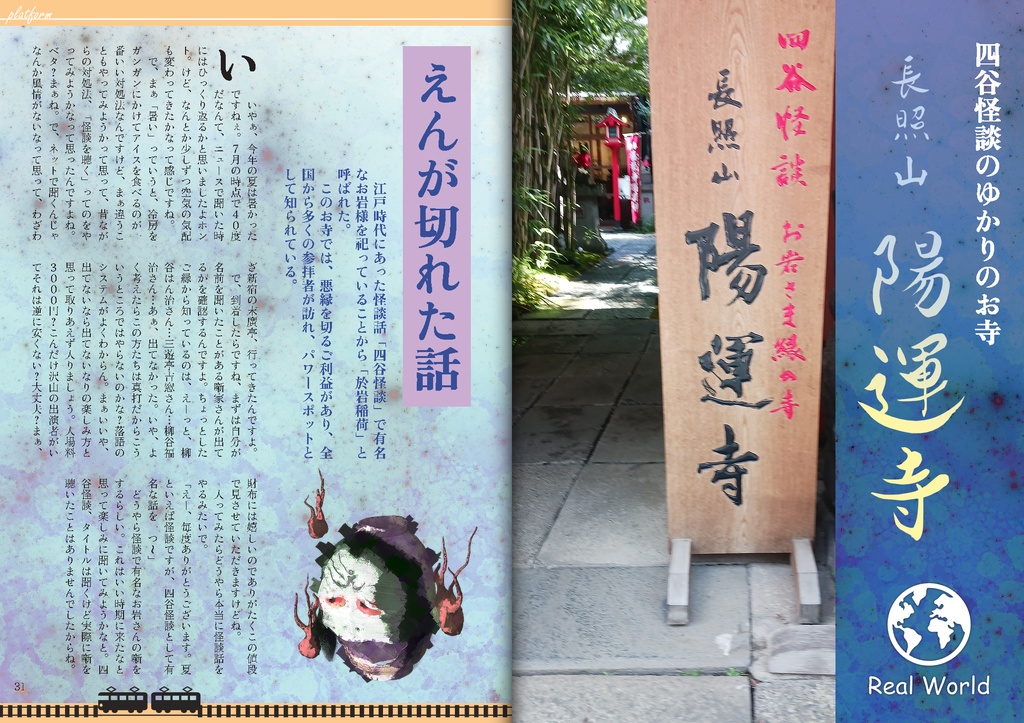 四谷怪談のゆかりのお寺
長照山
陽運寺
Real World
四谷怪談 お岩さま縁の寺
長照山
陽運寺
platform
えんが切れた話
江戸時代にあった怪談話「四谷怪談」で有名
なお岩様を祀っていることから「於岩稲荷」と
呼ばれた。
このお寺では、悪縁を切るご利益があり、全
国から多くの参拝者が訪れ、パワースポットと
して知られている。
い
いやぁ、今年の夏は暑かった
ですねぇ。7月の時点で40度
だなんて、ニュースで聞いた時
にはひっくり返るかと思いましたよホン
ト。けど、なんとか少しずつ空気の気配
も変わってきたかなって感じですね。
で、まぁ「暑い」っていうと、冷房を
ガンガンにかけてアイスを食べるのが一
番いい対処法なんですけど、まぁ違うこ
ともやってみようかって思って、昔なが
らの対処法、「怪談を聴く」ってのをや
ってみようかなって思ったんですよね。
ベタ？まぁね。で、ネットで聞くんじゃ
なんか風情がないなって思って、わざわ
ざ新宿の末廣亭、行ってきたんですよ。
で、到着したらですね、まずは自分が
名前を聞いたことがある噺家さんが出て
るかを確認するんですよ。ちょっとした
ご縁から知っているのは、えーっと、柳
谷はん治さん…三遊亭吉窓さん…柳谷福
治さん…あぁ、出てなかった。いや、よ
く考えたらこの方たちは真打だからこう
いうところではやらないのかな？落語の
システムがよくわからん。まぁいいや、
出てないなら出てないなりの楽しみ方と
思って取りあえず入りましょう。入場料
3000円？こんだけ沢山の出演者がい
てそれは逆に安くない？大丈夫？まぁ、
財布には嬉しいのでありがたくこの値段
で見させていただきますけどね。
入ってみたらどうやら本当に怪談話を
やるみたいで。
「えー、毎度ありがとうございます。夏
といえば怪談ですが、四谷怪談として有
名な話を一つ～」
どうやら怪談で有名なお岩さんの噺を
するらしい。これはいい時期に来たなと
思って楽しみに聞いてみようかなと。四
谷怪談、タイトルは聞くけど実際に噺を
聴いたことはありませんでしたからね。
31